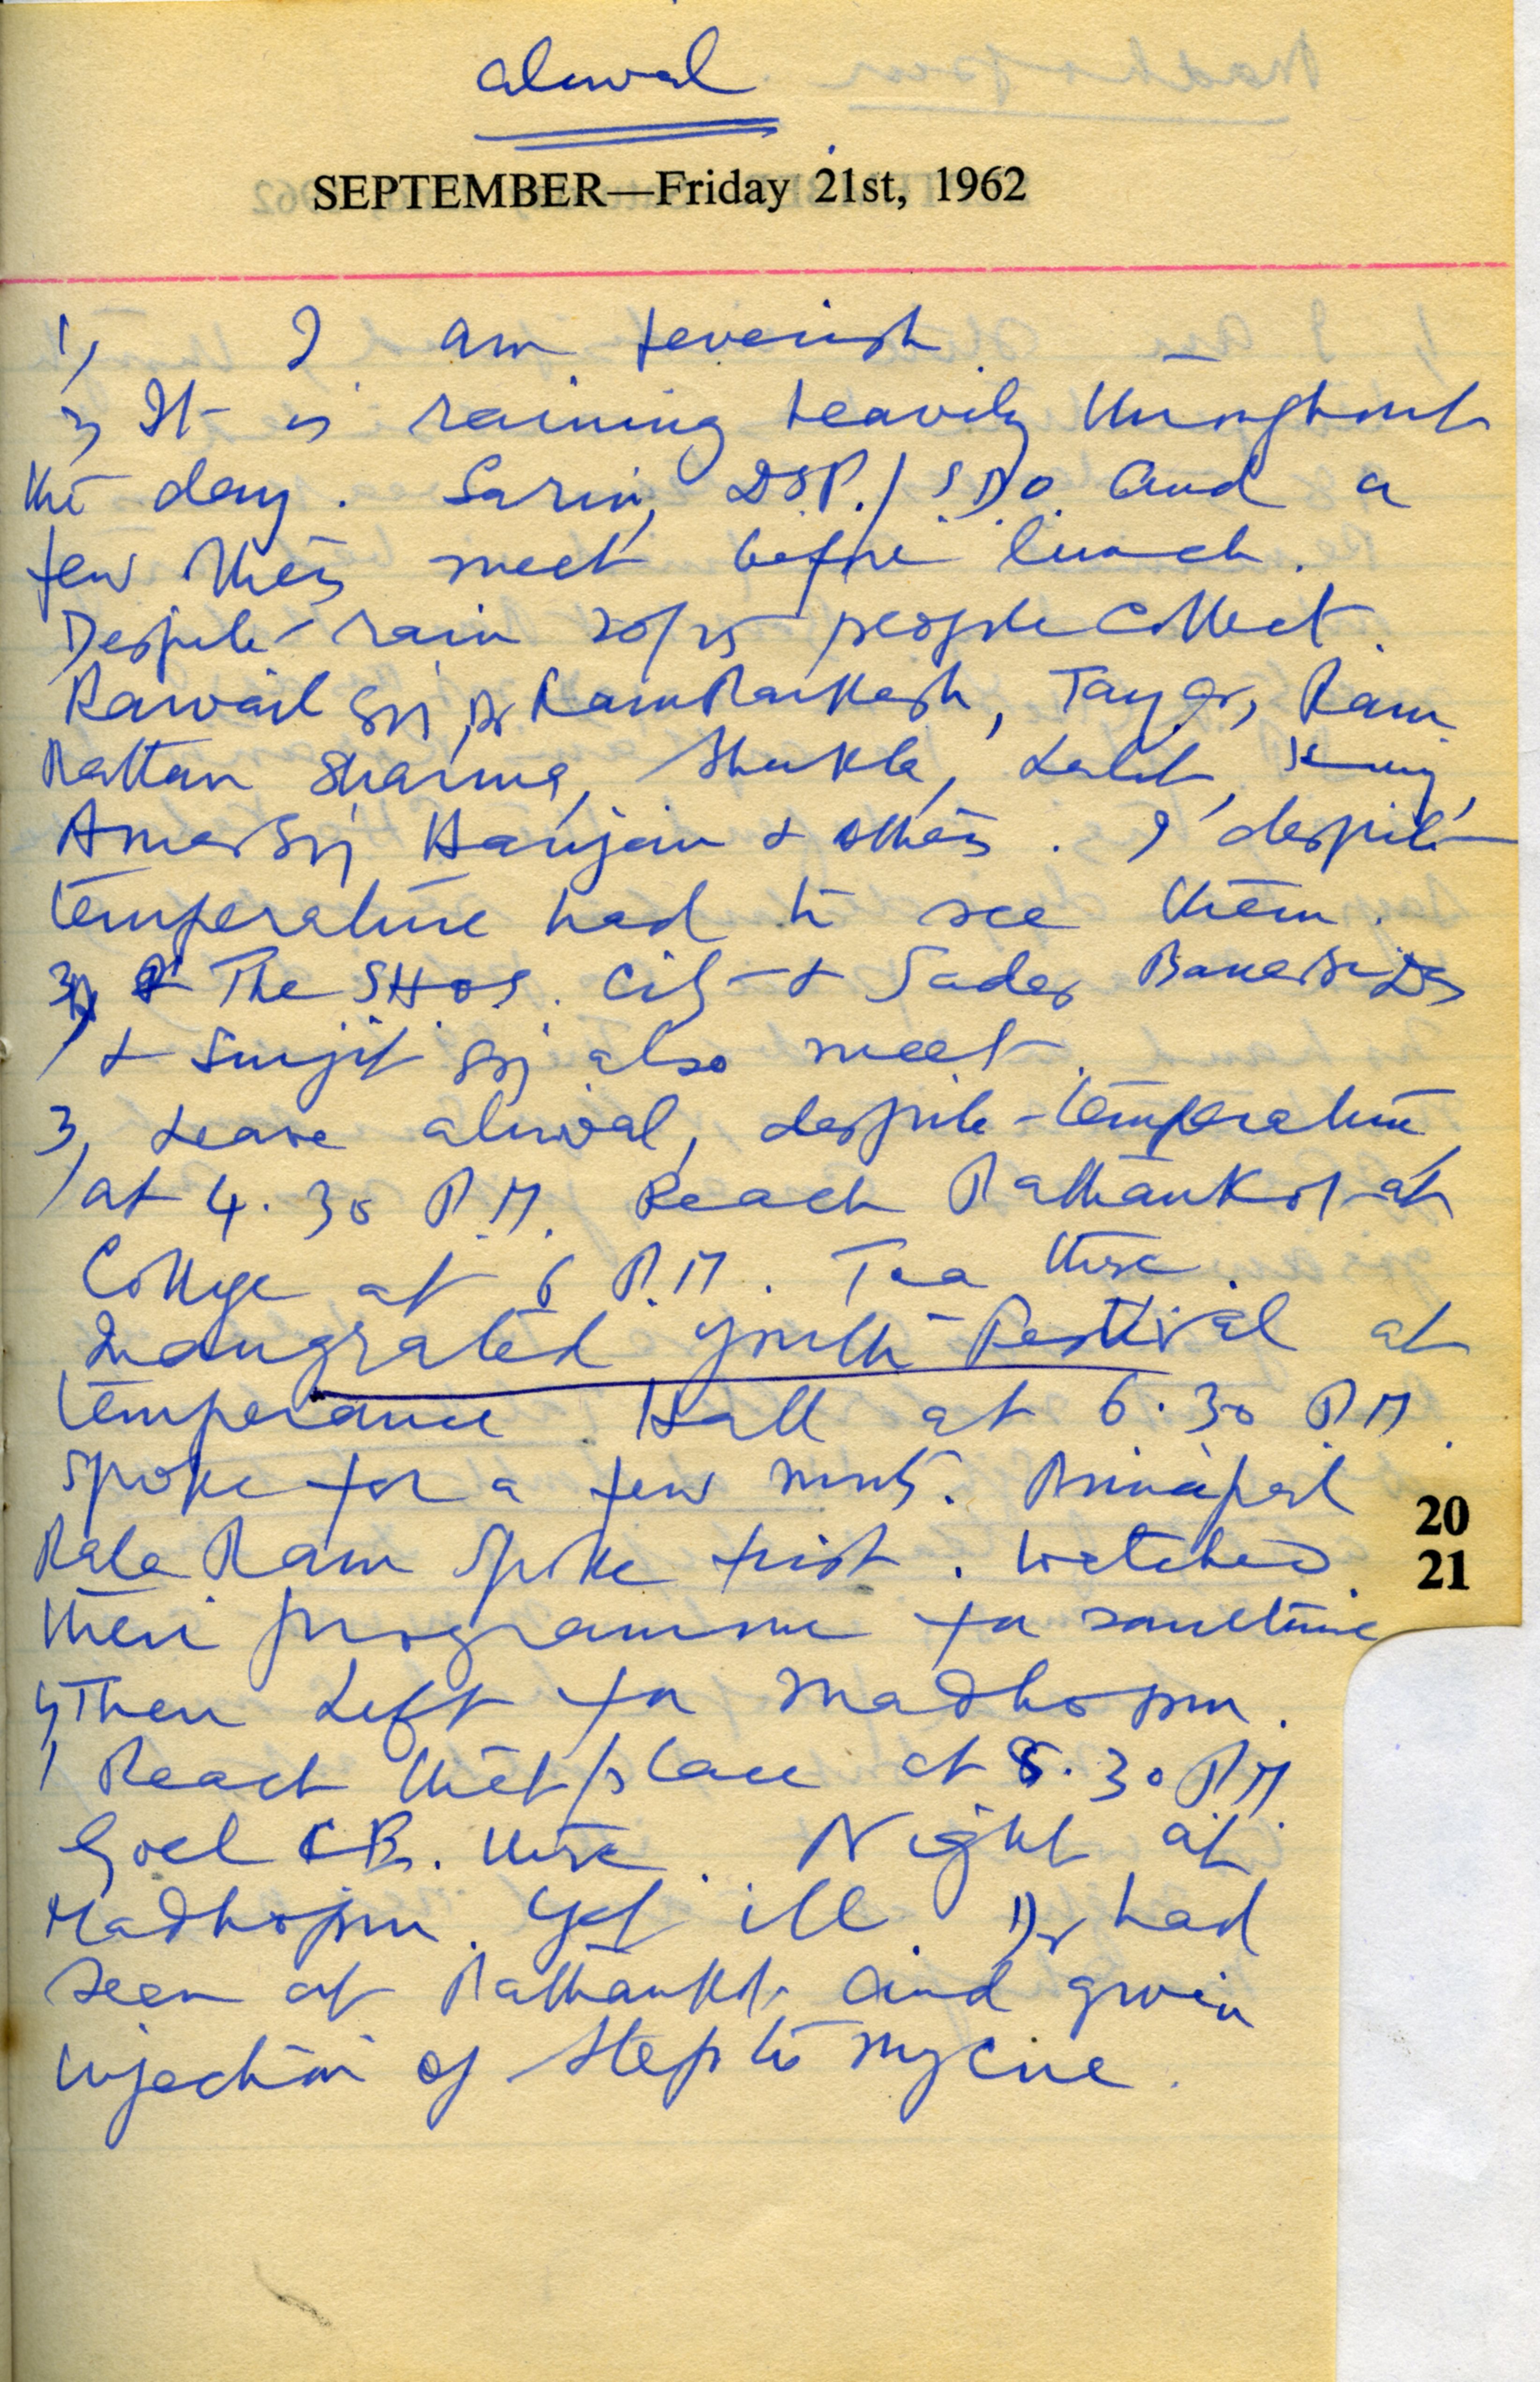 aluwal
SEPTEMBER—Friday 21st, 1962
1, I am feverish
2, It is raining heavily throughout
the day. Sarin, DSP./ SDO and a
few others meet before lunch.
Despite rain 20/25 people collect.
Rawail Sgj, Dr Ram Parkash, Tay Gr, Ram
Rattan Sharma, Shukla, Lalit,
Amar Sgj Harijan & others. I despite
temperature had to see them.
3, The SHOs. City & Sadar Banarsi Das
& Surjit Sgj also meet.
3, Leave aluwal, despite temperature,
at 4.30 P.M. Reach Pathankot at
College at 6 P.M. Tea there.
Inaugrated Youth Festival at
temperance Hall at 6.30 P.M.
Spoke for a few mnts. Principal
Rala Ram spoke first. Watched
their programme for sometime
4, Then Left for Madhopur.
Reach that place at 8.30 P.M.
Goel there. Night at
Madhopur. Yet ill. Dr had
seen at Pathankot and given
injection of Steptomycine.
20
21